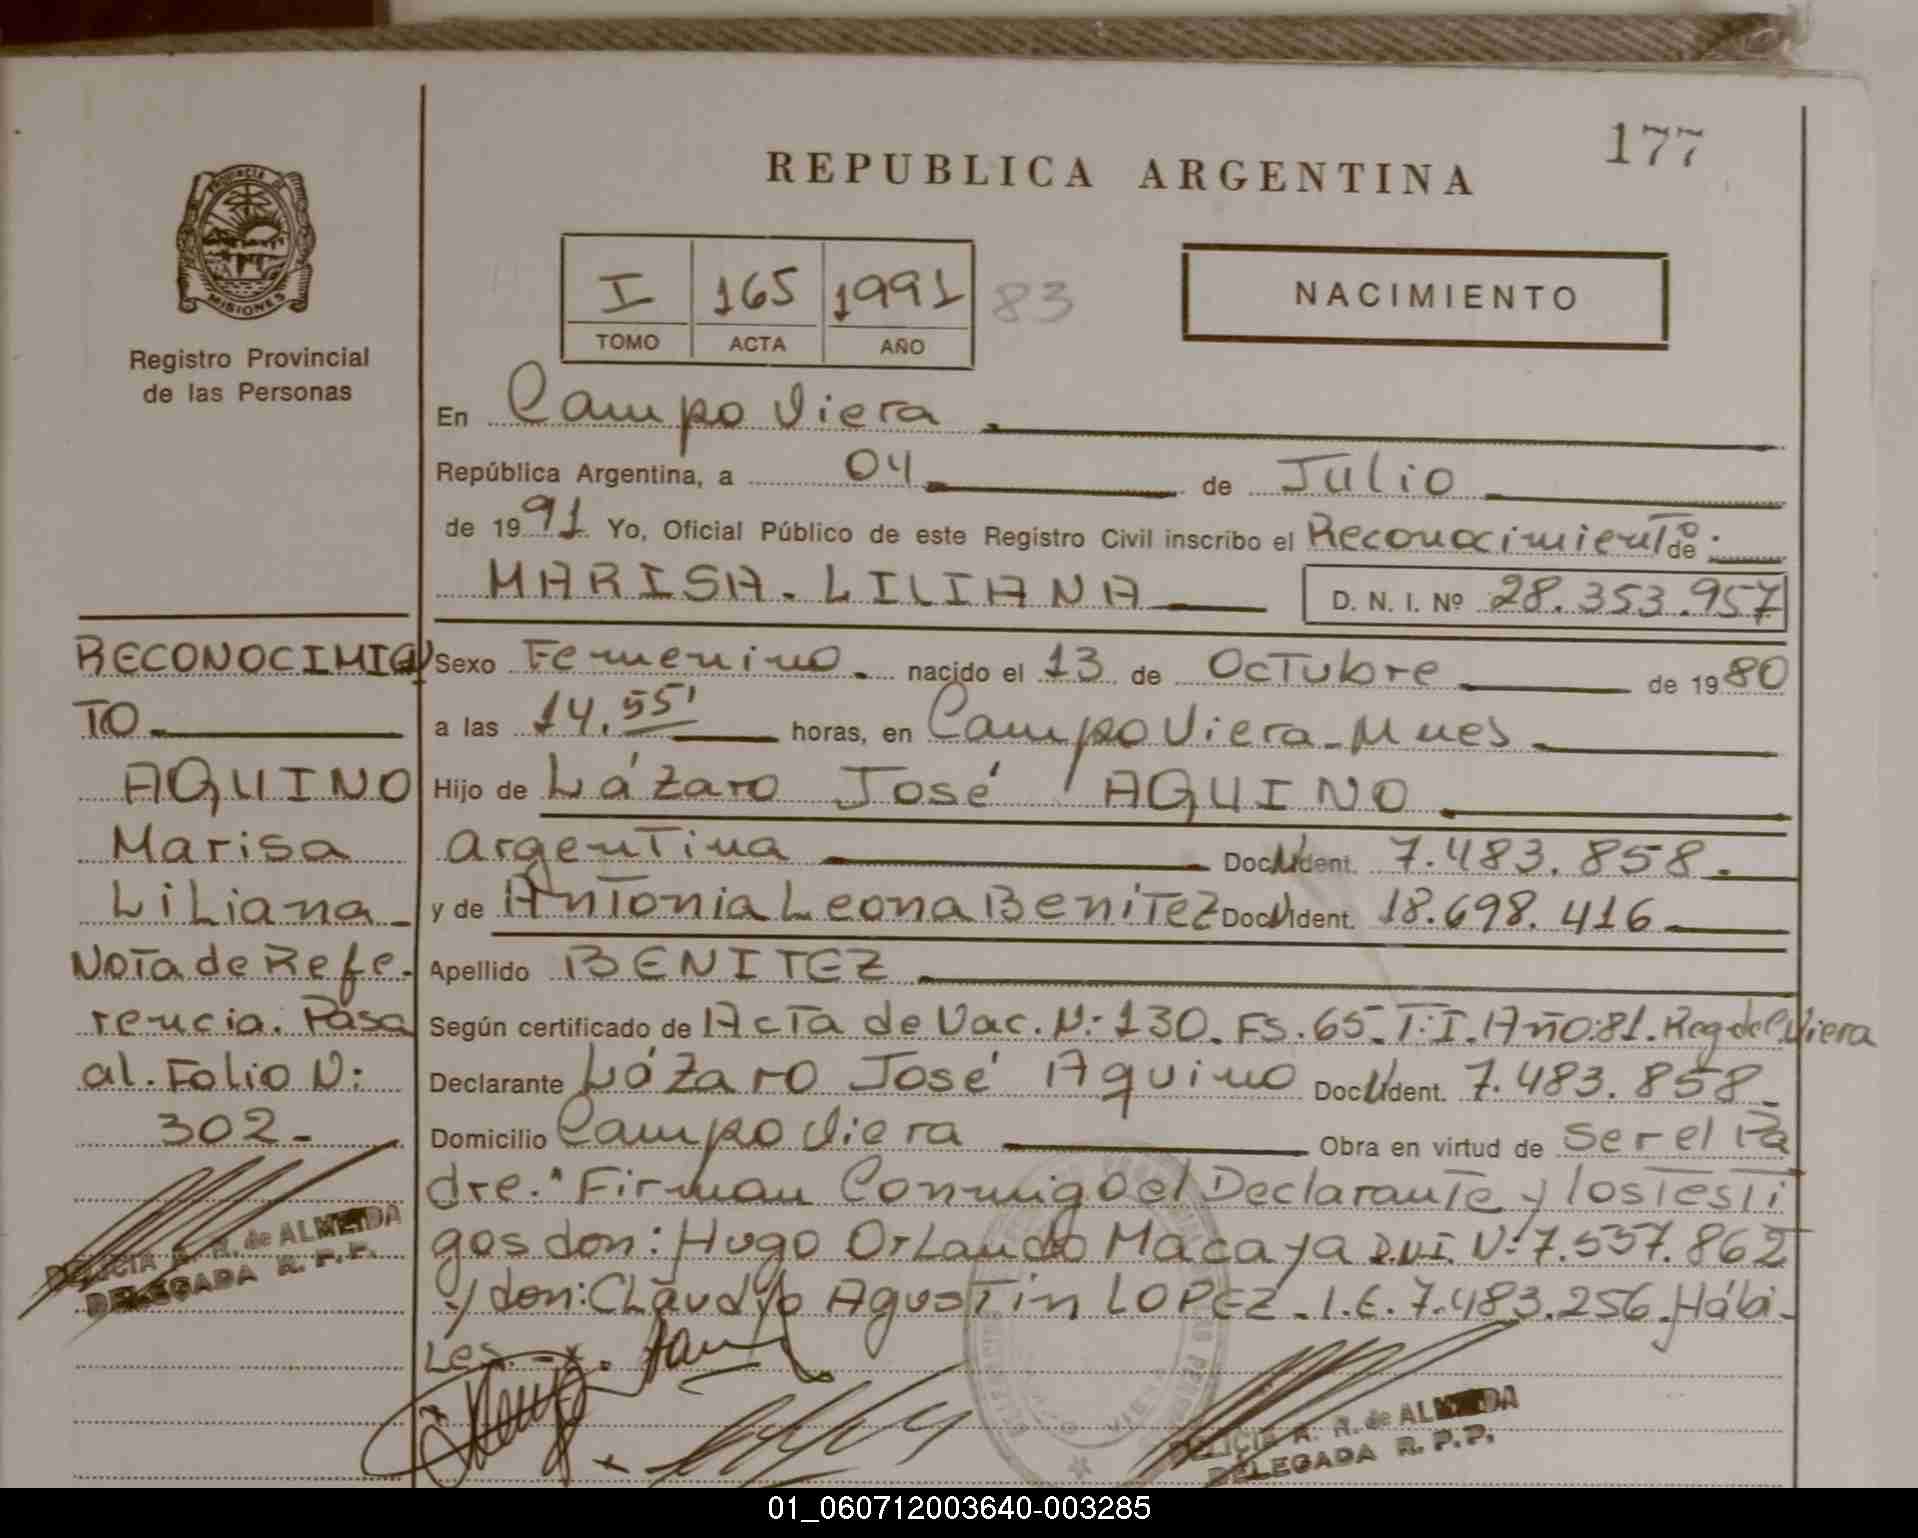 177
REPUBLICA ARGENTINA
PROVINCIA DE
MISIONES
Registro Provincial
de las Personas
I 165 1991 83
TOMO ACTA AÑO
NACIMIENTO
En Campo Viera
República Argentina, a 04 de Julio
de 1991 Yo, Oficial Público de este Registro Civil inscribo el Reconocimiento de:
MARISA. LILIANA D. N. I. Nº 28.353.957
Sexo Femenino. nacido el 13 de Octubre de 1980
a las 14.55' horas, en Campo Viera - Mnes
Hijo de Lázaro José AQUINO
argentina Doc. Ident. 7.483.858.
y de Antonia Leona Benitez Doc. Ident. 18.698.416
Apellido BENITEZ
Según certificado de Acta de Nac. N: 130. FS. 65. T: I. Año: 81. Reg de C. Viera
Declarante Lázaro José Aquino Doc. Ident. 7.483.858
Domicilio Campo Viera Obra en virtud de ser el Pa
dre." Firman Conmigo el Declarante y los Testi
gos don: Hugo Orlando Macaya D.N.I. N: 7.537.862
y don: Claudio Agustin LOPEZ. L.E. 7.483.256. Hábi-
Les.
RECONOCIMIEN
TO
AQUINO
Marisa
Liliana
Nota de Refe-
rencia. Pasa
al. Folio N:
302-
DELICIA R. R. de ALMEIDA
DELEGADA R. P. P.
DELICIA R. R. de ALMEIDA
DELEGADA R. P. P.
01_060712003640-003285